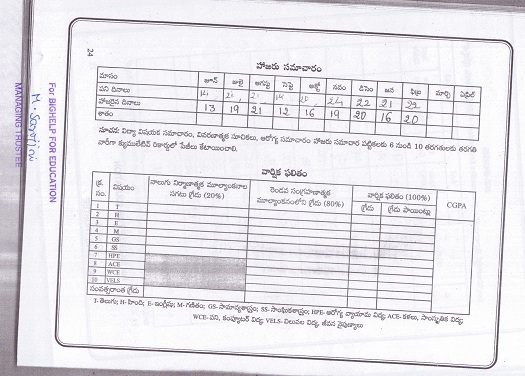 24
హాజరు సమాచారం
మాసం జూన్ జులై ఆగస్టు సెప్టెం అక్టో నవం డిసెం జన ఫిబ్ర మార్చి ఏప్రిల్
పని దినాలు 24 22 21 22
హాజరైన దినాలు 13 19 21 12 16 19 20 16 20
శాతం
సూచన: విద్యా విషయక సమాచారం, వివరణాత్మక సూచికలు, ఆరోగ్య సమాచారం హాజరు సమాచార పట్టికలకు 6 నుండి 10 తరగతులకు తరగతి
వారీగా క్యుములేటివ్ రికార్డులో పేజీలు కేటాయించాలి.
వార్షిక ఫలితం
క్ర. సం. విషయం నాలుగు నిర్మాణాత్మక మూల్యాంకనాల సగటు గ్రేడు (20%) రెండవ సంగ్రహణాత్మక మూల్యాంకనంలోని గ్రేడు (80%) వార్షిక ఫలితం (100%) CGPA
గ్రేడు గ్రేడు పాయింట్లు
1 T
2 H
3 E
4 M
5 GS
6 SS
7 HPE
8 ACE
9 WCE
10 VELS
సంవత్సరాంత గ్రేడు
T- తెలుగు; H- హింది; E- ఇంగ్లీషు; M- గణితం; GS- సామాన్యశాస్త్రం; SS- సాంఘికశాస్త్రం; HPE- ఆరోగ్య వ్యాయామ విద్య; ACE- కళలు, సాంస్కృతిక విద్య;
WCE- పని, కంప్యూటర్ విద్య; VELS- విలువల విద్య, జీవన నైపుణ్యాలు
For BIGHELP FOR EDUCATION
M. Sarojini
MANAGING TRUSTEE